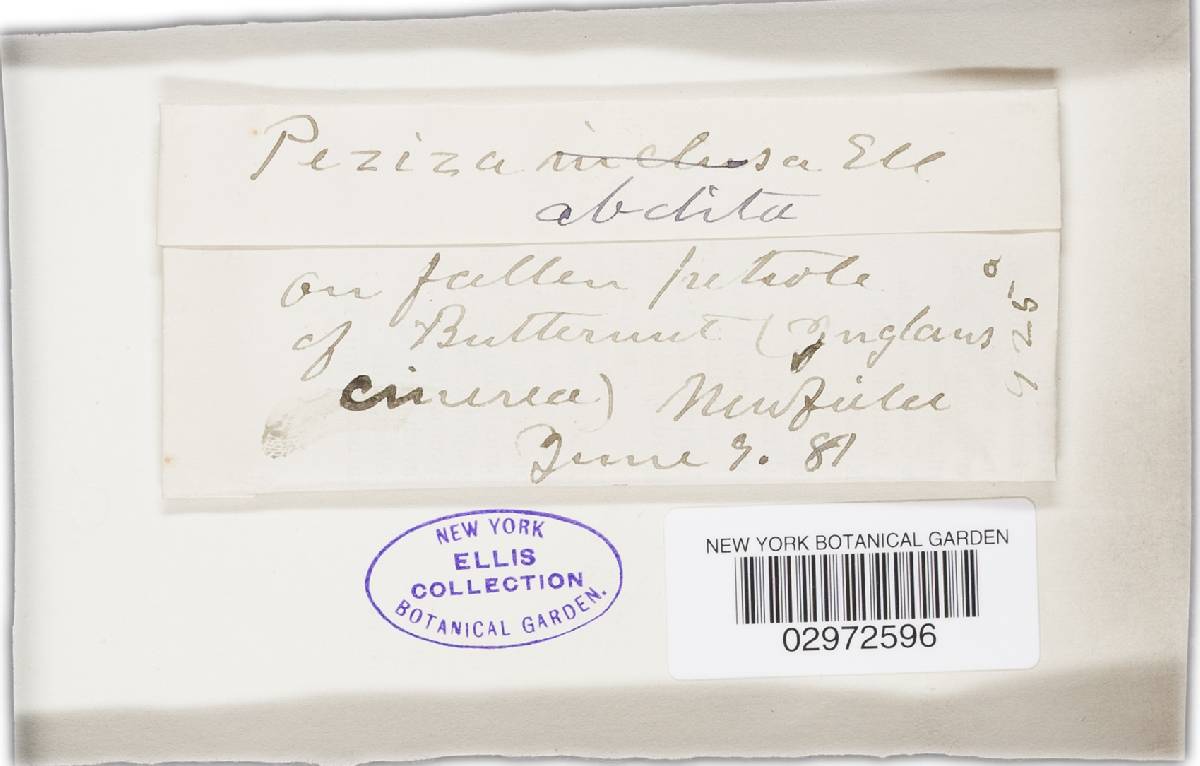 Peziza inclusa Ell
abdita
on fallen petiole
of Butternut (Juglans
cinerea) Newfield
June 9. 81
NEW YORK
ELLIS
COLLECTION
BOTANICAL GARDEN.
NEW YORK BOTANICAL GARDEN
02972596